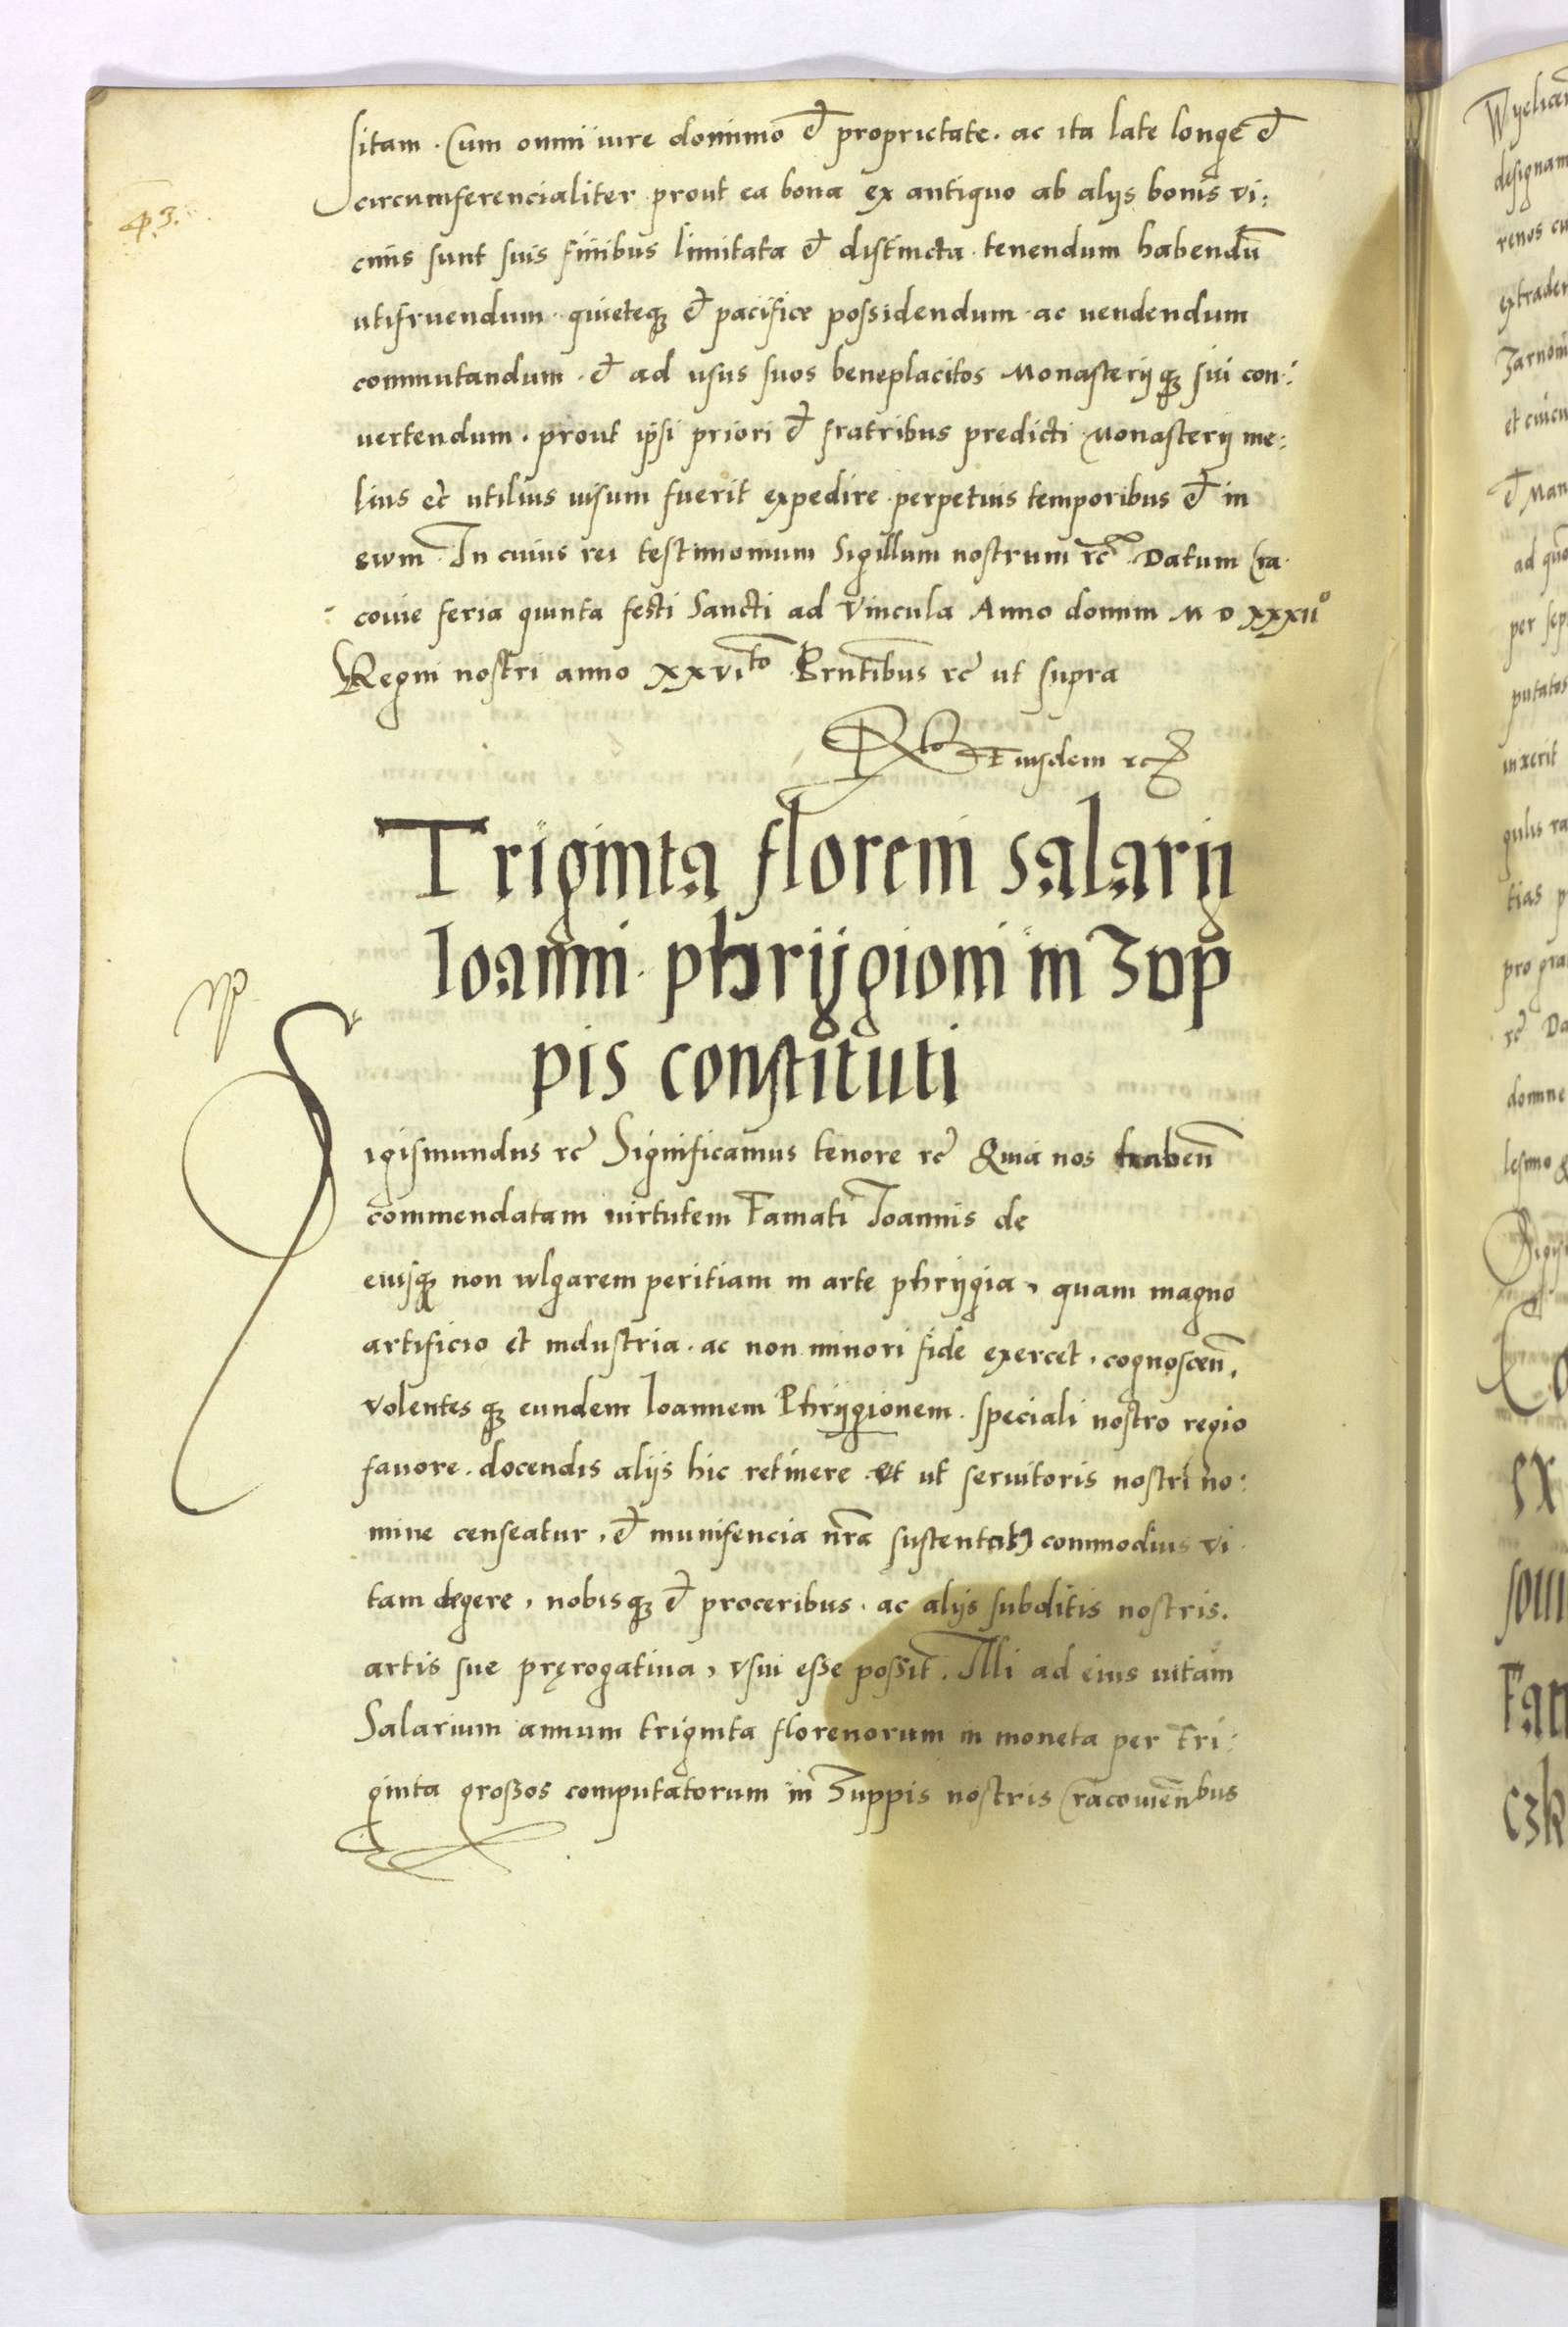 sitam . Cum omni iure dominio et proprietate . ac ita late longe et
43.
circumferencialiter prout ea bona ex antiquo ab alijs bonis vi:
cinis sunt suis finibus limitata et distincta . tenendum habendū
utifruendum . quieteqȝ et pacifice possidendum . ac uendendum
commutandum . et ad usus suos beneplacitos Monasterijqȝ sui con:
uertendum . prout ipsi priori et fratribus predicti Monasterij me:
lius et utilius uisum fuerit expedire . perpetuis temporibus et in
ewm In cuius rei testimonium Sigillum nostrum rc̄ . Datum Cra
couie feria quinta festi Sancti ad Vincula Anno domini M D XXXIIº
Regni nostri anno XXVIto Prntibus rc̄ ut supra
Rto Eiusdem rc
Triginta floreni Salarij
Ioanni . phrijgioni in Zup
pis constituti
Sigismundus rc̄ Significamus tenore rc̄ Quia nos habeñ
commendatam uirtutem Famati Ioannis de
eiusqȝ non wlgarem peritiam in arte phrijgia, quam magno
artificio et industria . ac non minori fide exercet . cognosceñ .
volentes qȝ eundem Ioannem Phrijgionem . speciali nostro regio
fauore . docendis alijs hic retinere . et ut seruitoris nostri no:
mine censeatur . et munifencia nr̄a sustentatꝰ commodius vi
tam degere, nobisqȝ et proceribus . ac alijs subditis nostris .
artis sue pręrogatiua, vsui esse possit . Illi ad eius uitam
Salarium annuum triginta florenorum in moneta per tri:
ginta grossos computatorum in Zuppis nostris Cracouieñbus